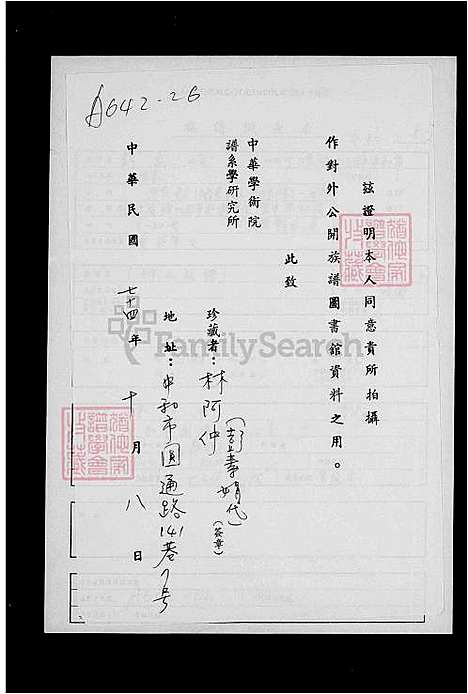 A042-26
茲證明本人同意貴所拍攝
作對外公開族譜圖書館資料之用。
此致
中華學術院
譜系學研究所
珍藏者：林阿仲(彭壽娟代)(簽章)
地址：中和市圓通路141巷7号
中華民國七十四年十月八日
FamilySearch